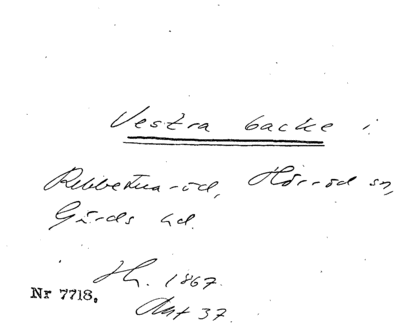 Vestra backe i
Rebbetuaröd, Hörröd sn,
Gärds hd.
Sk. 1867.
Nr 7718.
Akt 37.